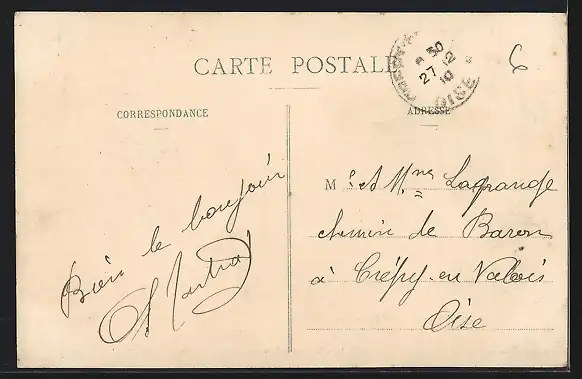 CARTE POSTALE
* 30
27 12
10
OISE
6
CORRESPONDANCE
ADRESSE
Bien le bonjour
M.r et Mme Lagrange
chemin de Baron
à Crépy-en Valois
Oise